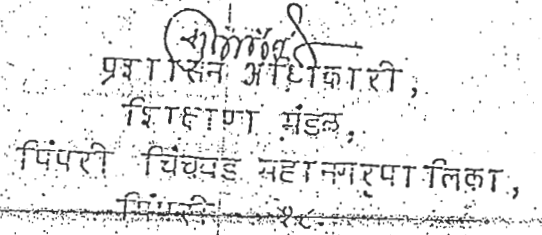 प्रशासन अधिकारी,
शिक्षण मंडळ,
पिंपरी चिंचवड महानगरपालिका,
पिंपरी १८.